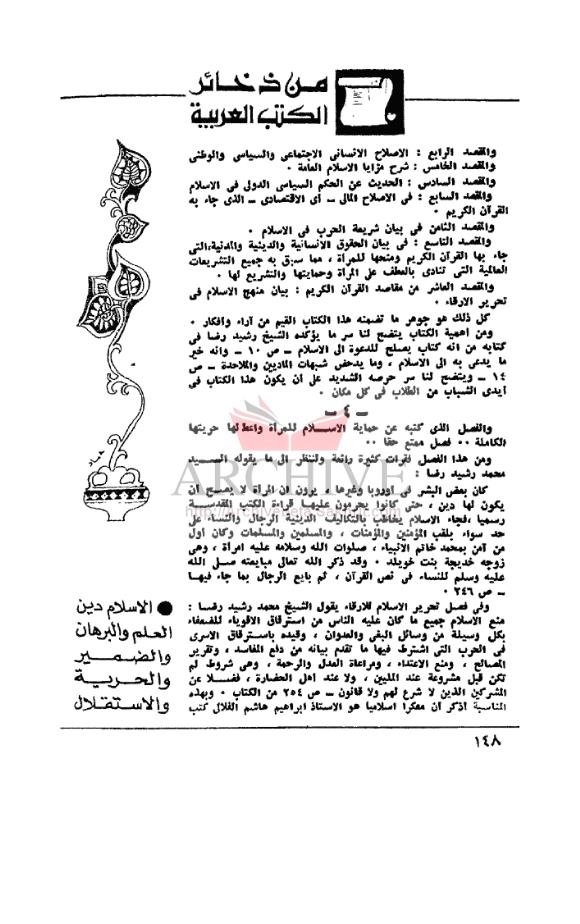 من ذخائر
الكتب العربية
والمقصد الرابع : الاصلاح الانسانى الاجتماعى والسياسى والوطنى
والمقصد الخامس : شرح مزايا الاسلام العامة ٠
والمقصد السادس : الحديث عن الحكم السياسى الدولى فى الاسلام
والمقصد السابع : فى الاصلاح المالى ـ أى الاقتصادى ـ الذى جاء به
القرآن الكريم ٠
والمقصد الثامن فى بيان شريعة الحرب فى الاسلام ٠
والمقصد التاسع : فى بيان الحقوق الانسانية والدينية والمدنية،التى
جاء بها القرآن الكريم ومنحها للمرأة ، مما سبق به جميع التشريعات
العالمية التى تنادى بالعطف على المرأة وحمايتها والتشريع لها ٠
والمقصد العاشر من مقاصد القرآن الكريم : بيان منهج الاسلام فى
تحرير الارقاء ٠
كل ذلك هو جوهر ما تضمنه هذا الكتاب القيم من آراء وأفكار ٠
ومن أهمية الكتاب يتضح لنا سر ما يؤكده الشيخ رشيد رضا فى
كتابه من أنه كتاب يصلح للدعوة الى الاسلام ـ ص ١٠ ـ وأنه خير
ما يدعى به الى الاسلام ، وما يدحض شبهات الماديين والملاحدة ـ ص
١٤ ـ ويتضح لنا سر حرصه الشديد على أن يكون هذا الكتاب فى
أيدى الشباب من الطلاب فى كل مكان ٠
ـ ٤ ـ
والفصل الذى كتبه عن حماية الاسلام للمرأة واعطائها حريتها
الكاملة ٠٠ فصل ممتع حقا ٠٠
ومن هذا الفصل فقرات كثيرة رائعة ولننظر الى ما يقوله السيد
محمد رشيد رضا :
ARCHIVE
كان بعض البشر فى أوروبا وغيرها ، يرون أن المرأة لا يصح أن
يكون لها دين ، حتى كانوا يحرمون عليها قراءة الكتب المقدسة
رسميا ،فجاء الاسلام يخاطب بالتكاليف الدينية الرجال والنساء على
حد سواء بلقب المؤمنين والمؤمنات ، والمسلمين والمسلمات وكان أول
من آمن بمحمد خاتم الأنبياء ، صلوات الله وسلامه عليه امرأة ، وهى
زوجه خديجة بنت خويلد ٠ وقد ذكر الله تعالى مبايعته صلى الله
عليه وسلم للنساء فى نص القرآن ، ثم بايع الرجال بما جاء فيها
ـ ص ٢٤٦ ٠
وفى فصل تحرير الاسلام للارقاء يقول الشيخ محمد رشيد رضا :
منع الاسلام جميع ما كان عليه الناس من استرقاق الأقوياء للضعفاء
بكل وسيلة من وسائل البغى والعدوان ، وقيده باسترقاق الاسرى
فى الحرب التى اشترط فيها ما تقدم بيانه من دفع المفاسد ، وتقرير
المصالح ، ومنع الاعتداء ، ومراعاة العدل والرحمة ، وهى شروط لم
تكن قبل مشروعة عند المليين ، ولا عند أهل الحضارة ، فضلا عن
المشركين الذين لا شرع لهم ولا قانون ـ ص ٢٥٤ من الكتاب ٠ وبهذه
المناسبة أذكر أن مفكرا اسلاميا هو الاستاذ ابراهيم هاشم الفلالى كتب
● الاسلام دين
العلم والبرهان
والضمير
والحرية
والاستقلال
١٤٨